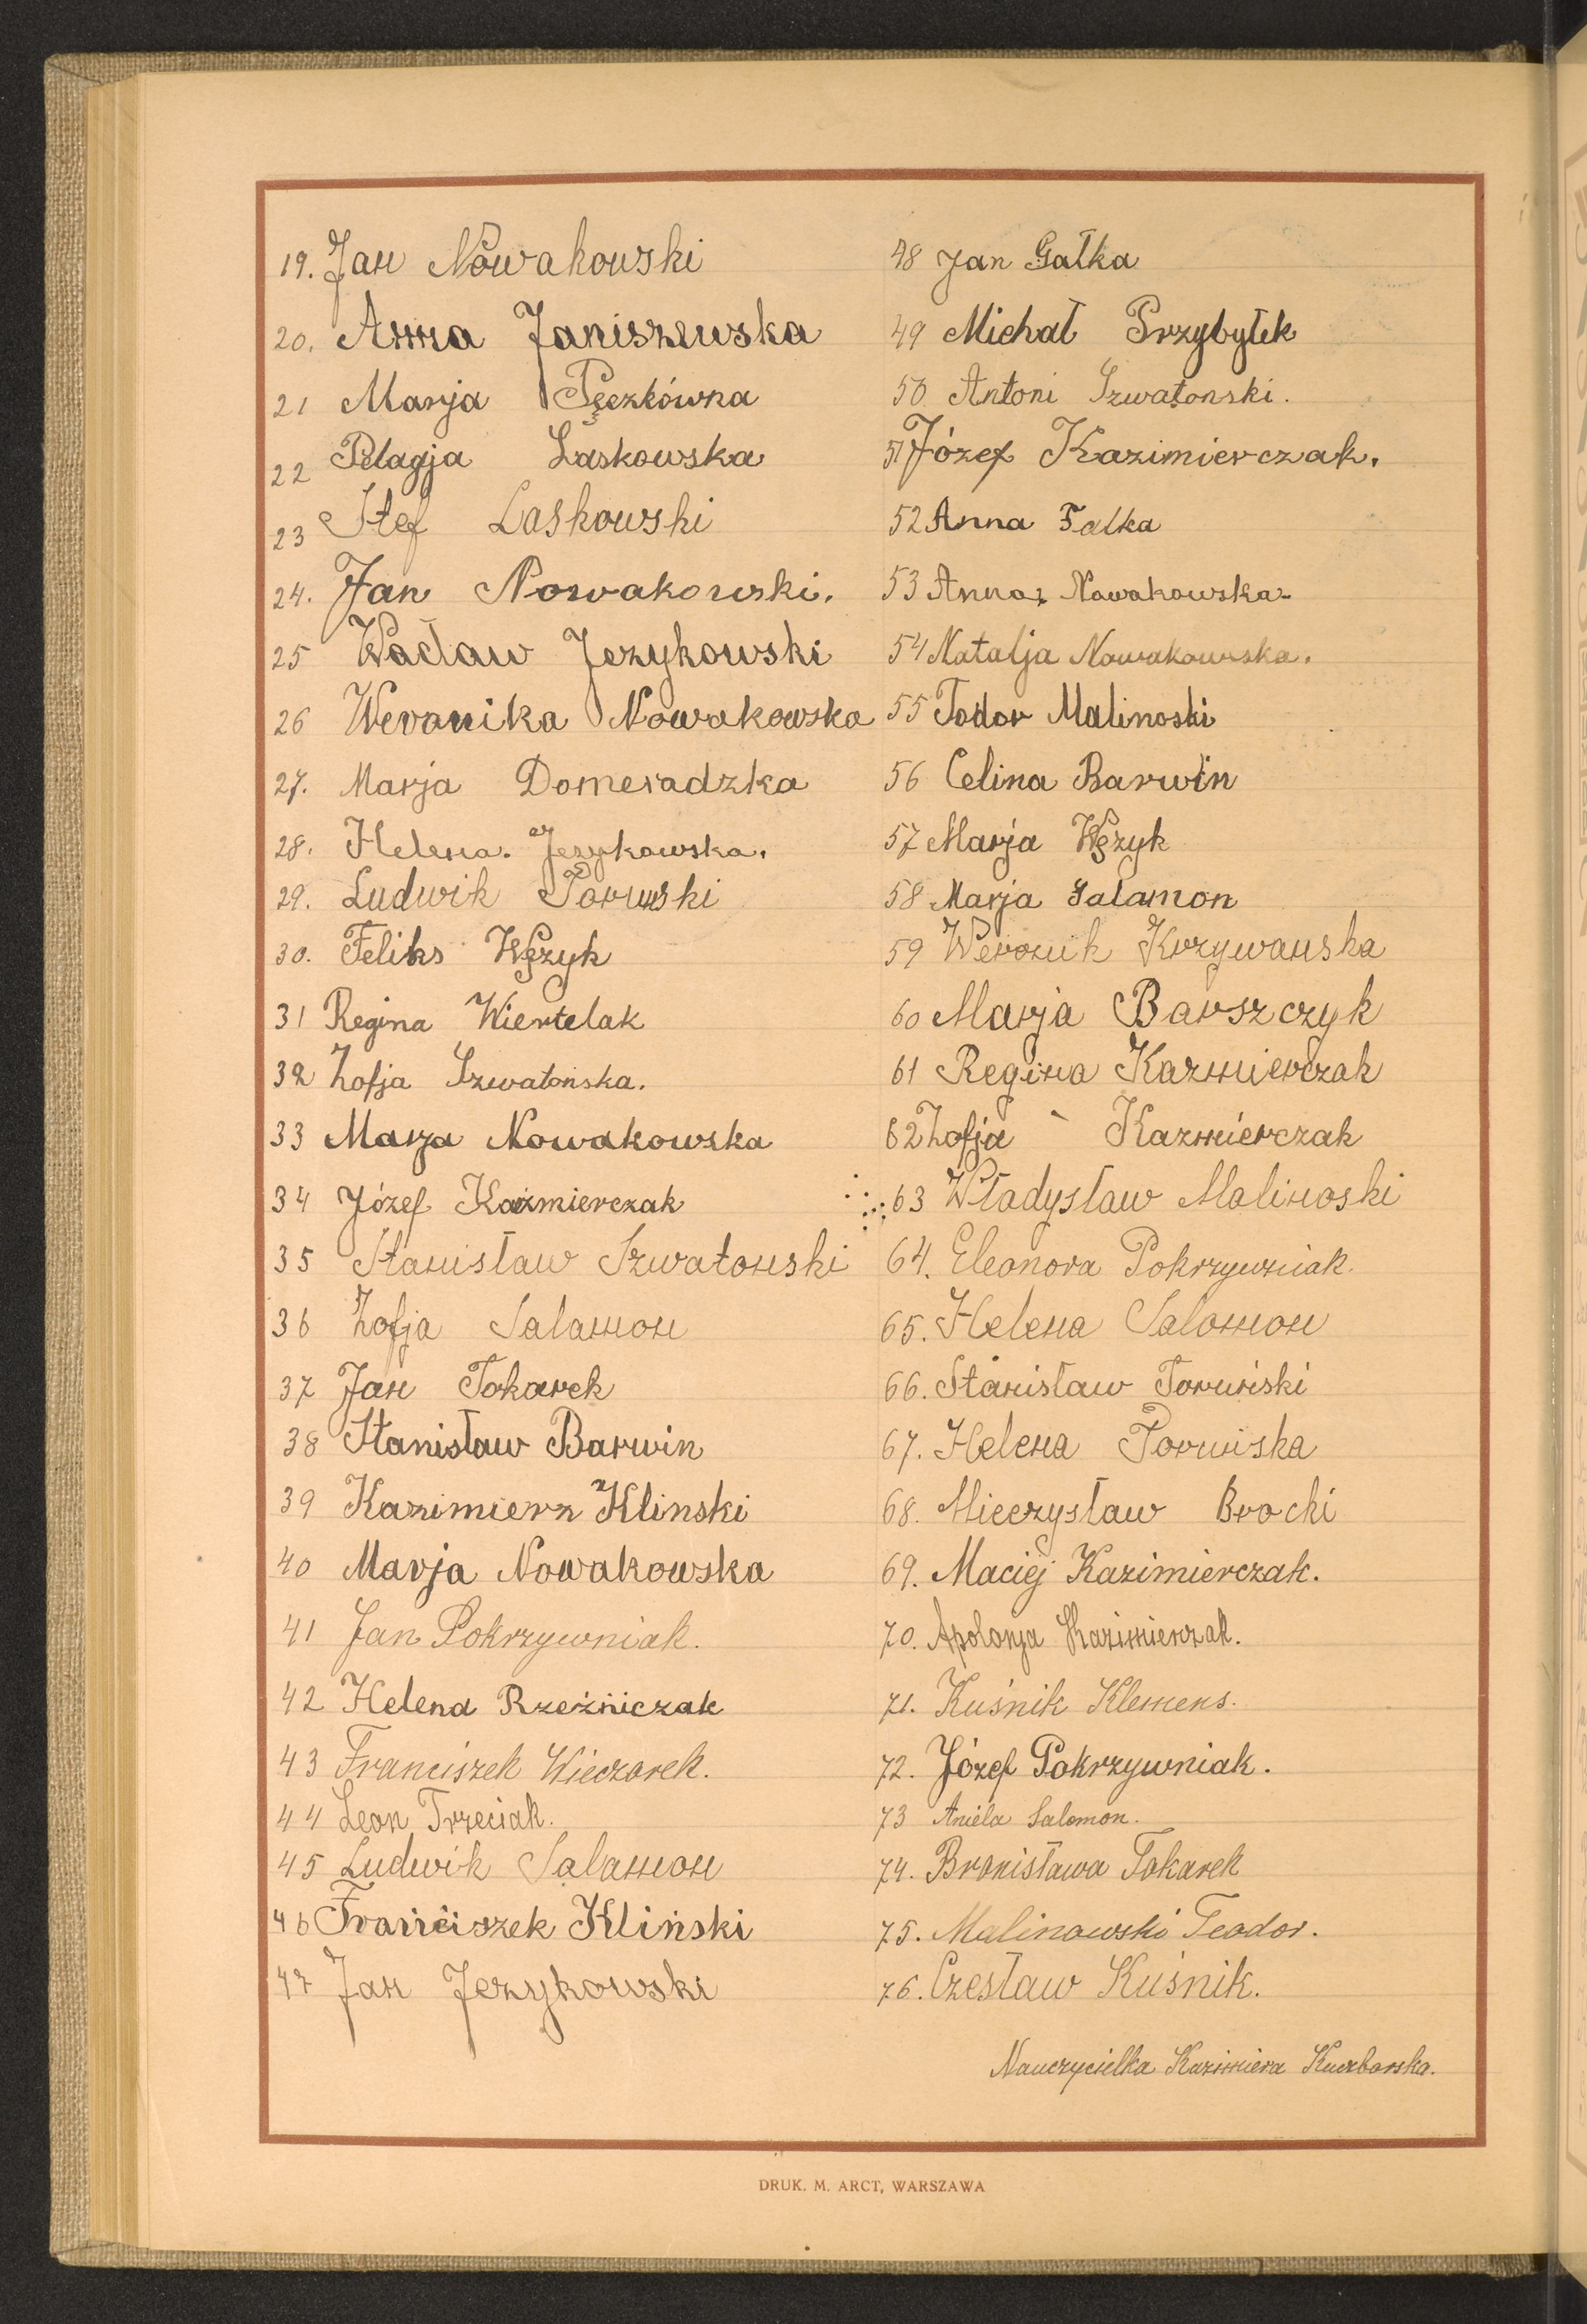 19. Jan Nowakowski
20. Anna Janiszewska
21 Marja Pęczkówna
22 Pelagja Laskowska
23 Stef Laskowski
24. Jan Nowakowski.
25 Wacław Jezykowski
26 Weronika Nowakowska
27. Marja Domeradzka
28. Helena. Jezykowska.
29. Ludwik Toruński
30. Feliks Wężyk
31 Regina Wiertelak
32 Zofja Szwatonska.
33 Marja Nowakowska
34 Józef Kaźmierczak
35 Stanisław Szwatonski
36 Zofja Salamon
37 Jan Tokarek
38 Stanisław Barwin
39 Kazimierz Klinski
40 Marja Nowakowska
41 Jan Pokrzywniak.
42 Helena Rzeźniczak
43 Franciszek Wieczorek.
44 Leon Trzeciak.
45 Ludwik Salamon
46 Franciszek Kliński
47 Jan Jezykowski
48 Jan Gałka
49 Michał Przybyłek
50. Antoni Szwatonski.
51 Józef Kazimierczak.
52 Anna Falka
53 Anna Nowakowska
54 Natalja Nowakowska.
55 Todor Malinoski
56 Celina Barwin
57 Marja Wężyk
58 Marja Salamon
59 Weronik Krzywanska
60 Marja Barszczyk
61 Regina Kazmierczak
62 Zofja Kazmierczak
63 Władysław Malinoski
64. Eleonora Pokrzywniak.
65. Helena Salomon
66. Stanisław Toruński
67. Helena Toruńska
68. Mieczysław Brocki
69. Maciej Kazimierczak.
70. Apolonja Kazimierczak.
71. Kuśnik Klemens.
72. Józef Pokrzywniak.
73 Aniela Salomon.
74. Bronisława Tokarek
75. Malinowski Teodor.
76. Czesław Kuśnik.
Nauczycielka Kazimiera Kuczborska.
DRUK. M. ARCT, WARSZAWA